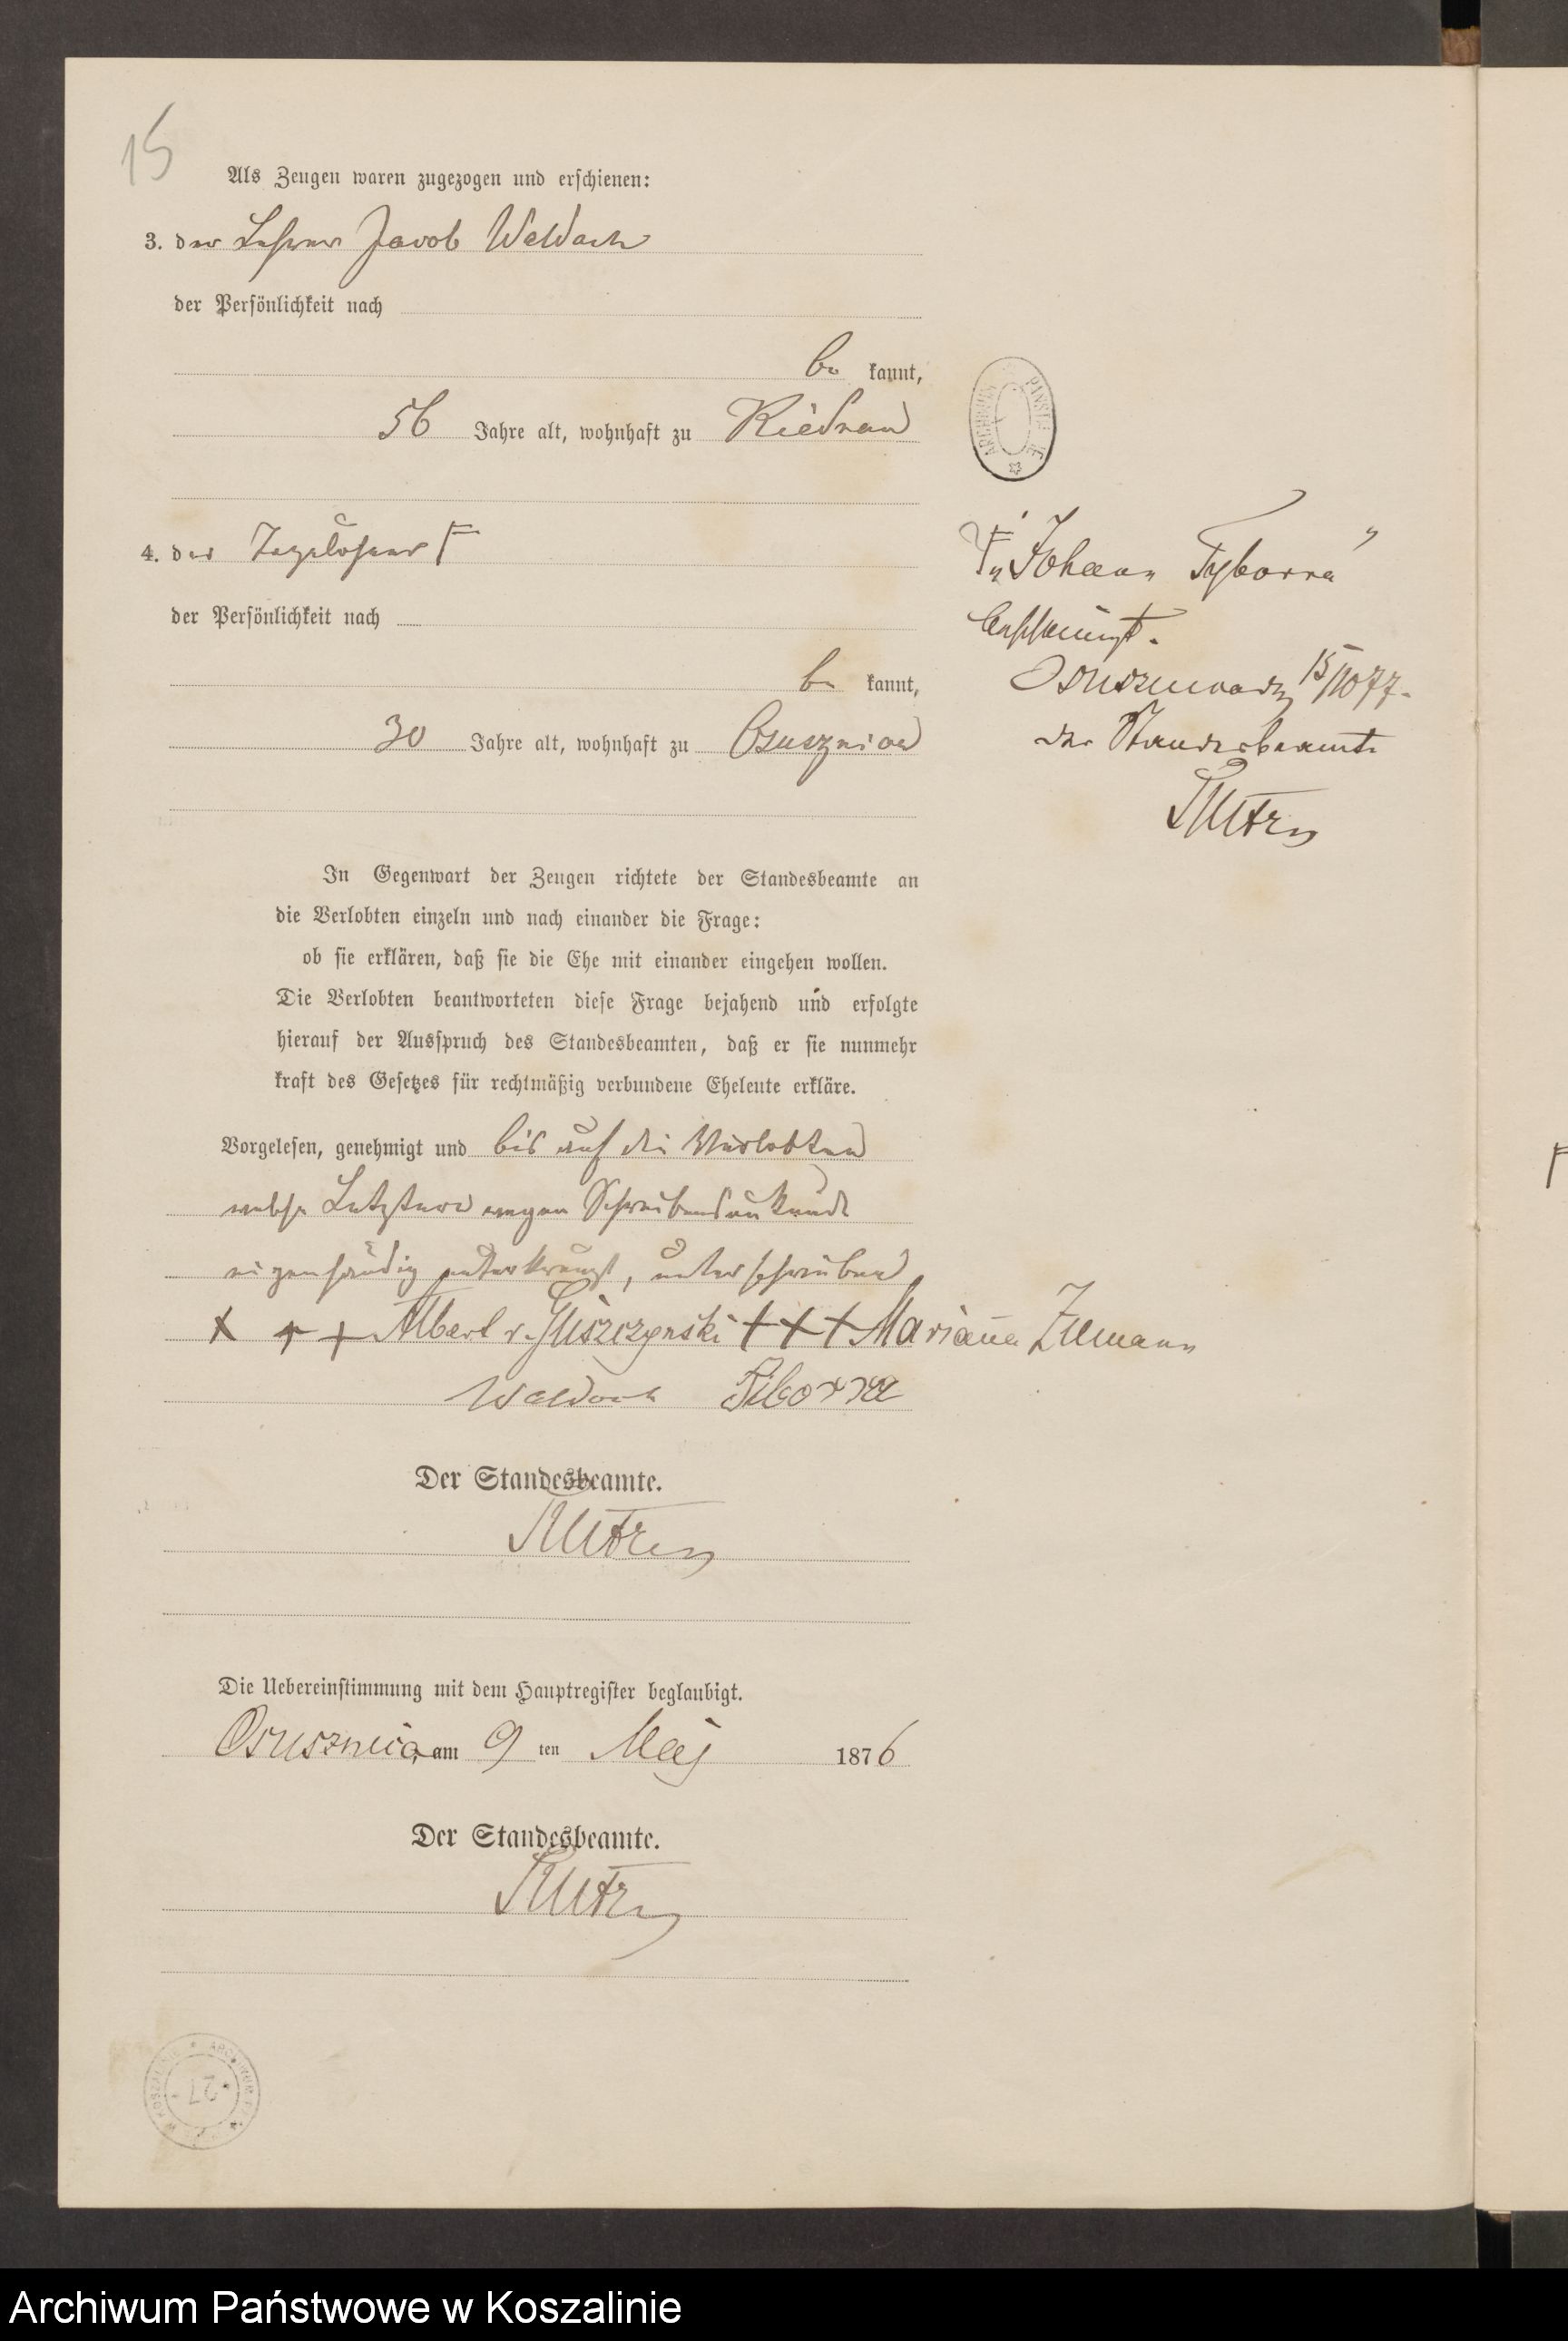 15
Als Zeugen waren zugezogen und erschienen:
3. der Lehrer Jacob Waldoch
der Persönlichkeit nach
be kannt,
56 Jahre alt, wohnhaft zu Kiedrau
4. der Tagelöhner F
der Persönlichkeit nach
be kannt,
30 Jahre alt, wohnhaft zu Osusznica
F „Johann Tyborra“
Osusznica den 15/10 77.
der Standesbeamte
In Gegenwart der Zeugen richtete der Standesbeamte an
die Verlobten einzeln und nach einander die Frage:
ob sie erklären, daß sie die Ehe mit einander eingehen wollen.
Die Verlobten beantworteten diese Frage bejahend und erfolgte
hierauf der Ausspruch des Standesbeamten, daß er sie nunmehr
kraft des Gesetzes für rechtmäßig verbundene Eheleute erkläre.
Vorgelesen, genehmigt und bis auf die Verlobten
welche Letztere wegen Schreibensunkunde
eigenhändig unterkreuzt, unterschrieben
+ + + Albert v. Gliszczynski + + + Mariana
Waldoch Tiborra
Der Standesbeamte.
Die Uebereinstimmung mit dem Hauptregister beglaubigt.
Osusznica, am 9 ten Maj 1876
Der Standesbeamte.
27
Archiwum Państwowe w Koszalinie